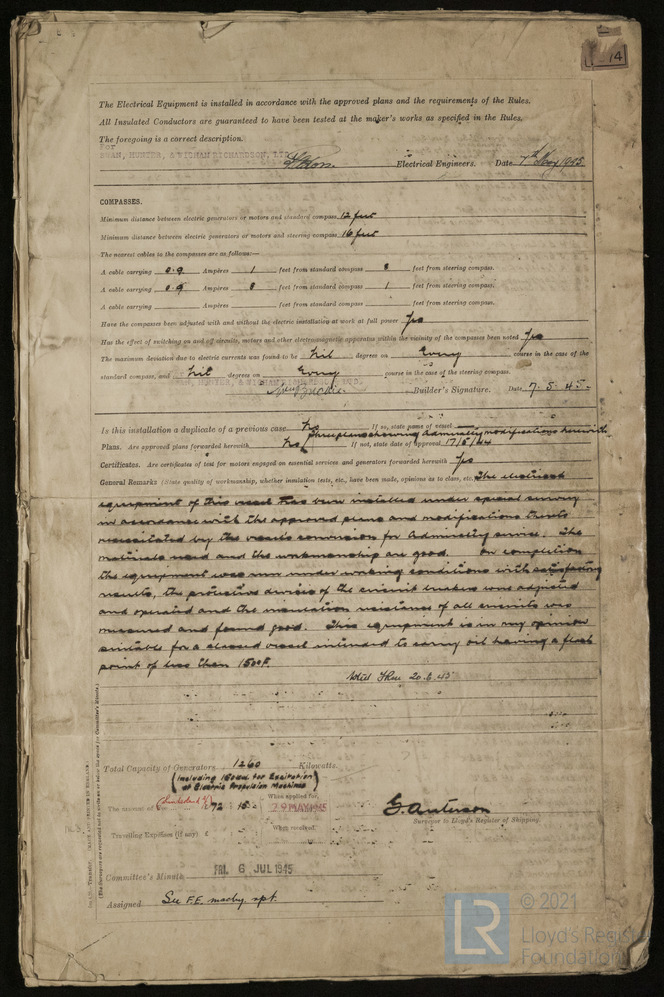 74
The Electrical Equipment is installed in accordance with the approved plans and the requirements of the Rules.
All Insulated Conductors are guaranteed to have been tested at the maker's works as specified in the Rules.
The foregoing is a correct description.
For
SWAN, HUNTER, & WIGHAM RICHARDSON, LTD.
Electrical Engineers. Date 7th May 1945.
COMPASSES.
Minimum distance between electric generators or motors and standard compass 12 feet
Minimum distance between electric generators or motors and steering compass 16 feet
The nearest cables to the compasses are as follows:—
A cable carrying 0.9 Ampères 1 feet from standard compass 8 feet from steering compass.
A cable carrying 0.9 Ampères 8 feet from standard compass 1 feet from steering compass.
A cable carrying Ampères feet from standard compass feet from steering compass.
Have the compasses been adjusted with and without the electric installation at work at full power Yes
Has the effect of switching on and off circuits, motors and other electromagnetic apparatus within the vicinity of the compasses been noted Yes
The maximum deviation due to electric currents was found to be Nil degrees on Every course in the case of the
standard compass, and Nil degrees on Every course in the case of the steering compass.
SWAN, HUNTER, & WIGHAM RICHARDSON, LTD.
Builder's Signature. Date 7. 5. 45.
Is this installation a duplicate of a previous case No If so, state name of vessel
Plans. Are approved plans forwarded herewith No (three plans showing Admiralty modifications herewith. If not, state date of approval 17/5/44
Certificates. Are certificates of test for motors engaged on essential services and generators forwarded herewith Yes
General Remarks (State quality of workmanship, whether insulation tests, etc., have been made, opinions as to class, etc. The electrical
equipment of this vessel has been installed under special survey
in accordance with the approved plans and modifications thereto
necessitated by the vessel's conversion for Admiralty service. The
materials used and the workmanship are good. On completion
the equipment was run under working conditions with satisfactory
results, the protective devices of the circuit breakers were adjusted
and operated and the insulation resistance of all circuits was
measured and found good. This equipment is in my opinion
suitable for a classed vessel intended to carry oil having a flash
point of less than 150°F.
Noted 20.6.45
Total Capacity of Generators 1260 Kilowatts.
(Including 160 kW for Excitation
of Electric Propulsion Machines)
The amount of Fee £ 72 : 15 : When applied for, 29 MAY 1945
Travelling Expenses (if any) £ When received,
Surveyor to Lloyd's Register of Shipping.
Committee's Minute FRI. 6 JUL 1945
Assigned See F.E. machy rpt.
LR
© 2021
Lloyd's Register
Foundation